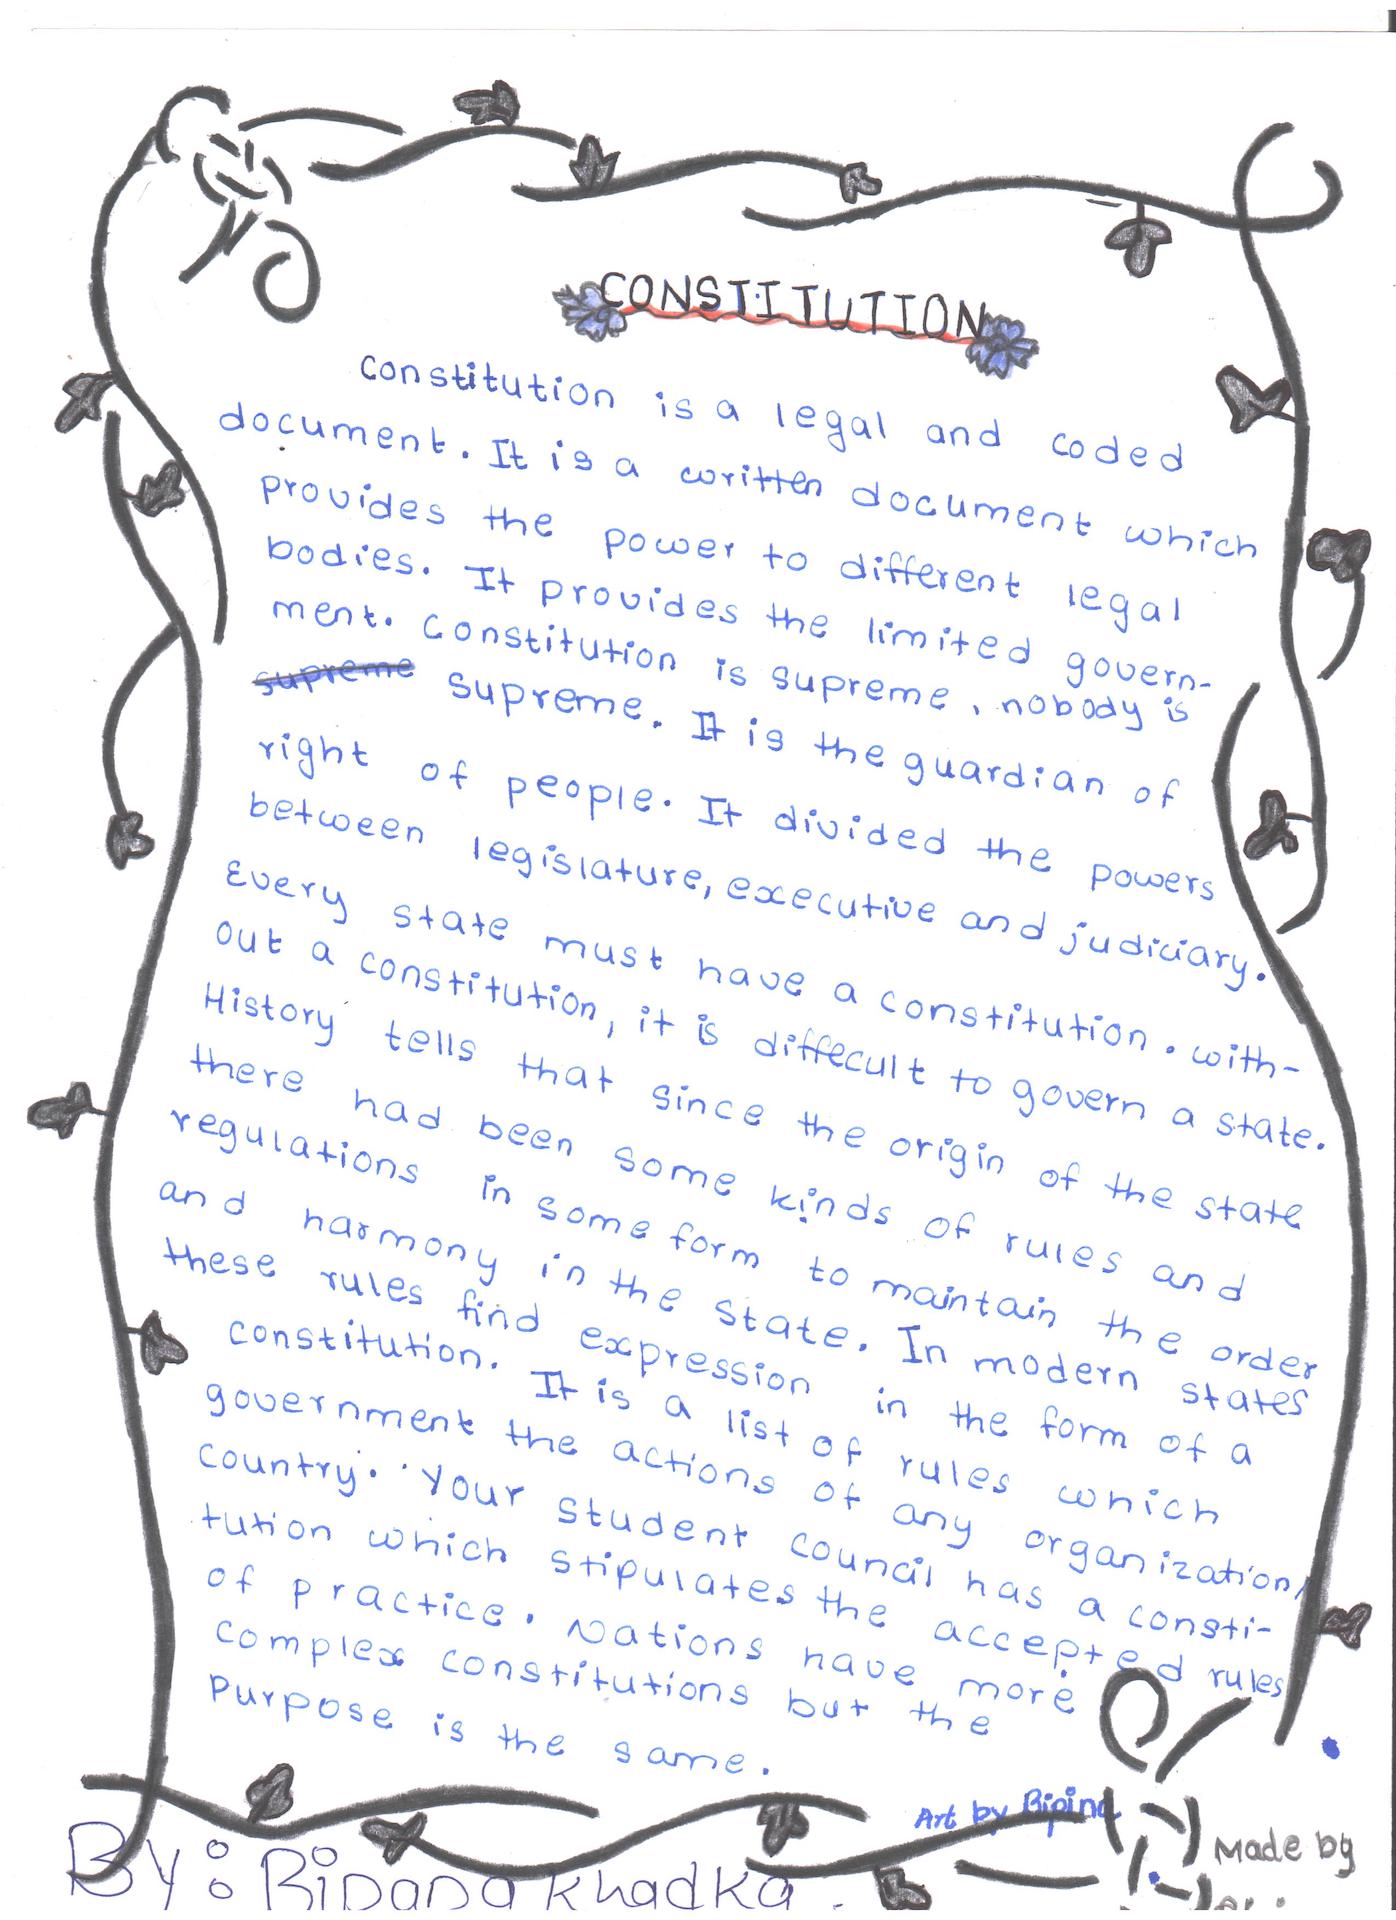 CONSTITUTION
Constitution is a legal and coded
document. It is a written document which
provides the power to different legal
bodies. It provides the limited govern-
ment. Constitution is supreme, nobody is
supreme supreme. It is the guardian of
right of people. It divided the powers
between legislature, executive and judiciary.
Every state must have a constitution. with-
out a constitution, it is diffecult to govern a state.
History tells that since the origin of the state
there had been some kinds of rules and
regulations in some form to maintain the order
and harmony in the state. In modern states
these rules find expression in the form of a
constitution. It is a list of rules which
government the actions of any organization,
country. Your student council has a consti-
tution which stipulates the accepted rules
of practice. Nations have more
complex constitutions but the
purpose is the same.
Art by
Made by
By: Khadka